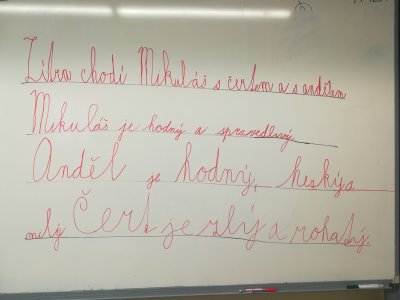 Zítra chodí Mikuláš s čertem a s andělem
Mikuláš je hodný a spravedlivý.
Anděl je hodný, heský a
milý Čert je zlý a rohatý.